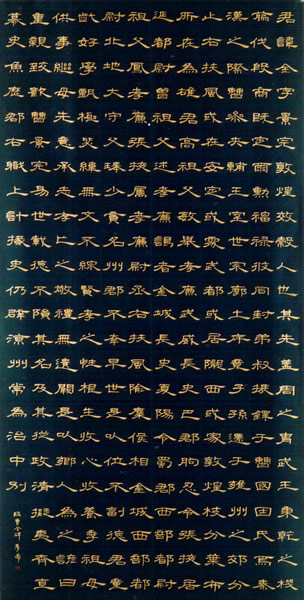 君諱全字景完敦煌效穀人也其先蓋周之胄武王秉乾之
機翦伐殷商既定爾勳福祿攸同封弟叔振鐸于曹國因氏焉秦
漢之際曹參夾輔王室世宗廓土斥竟子孫遷于雍州之郊分
止右扶風或在安定或處武都或居隴西或家敦煌枝分葉布
所在為雄君高祖父敏舉孝廉武威長史巴郡朐忍令張掖居
延都尉曾祖父述孝廉謁者金城長史夏陽令蜀郡西部都尉
祖父鳳孝廉張掖屬國都尉丞右扶風隃麋侯相金城西部都
尉北地太守父琫少貫名州郡不幸早世是以位不副德君童
齔好學甄極毖緯無文不綜賢孝之性根生於心收養季祖母
供事繼母先意承志存亡之敬禮無遺闕是以鄉人為之諺曰
重親致歡曹景完易世載德不隕其名及其從政清擬夷齊直
慕史魚歷郡右職上計掾史仍辟涼州常為治中別